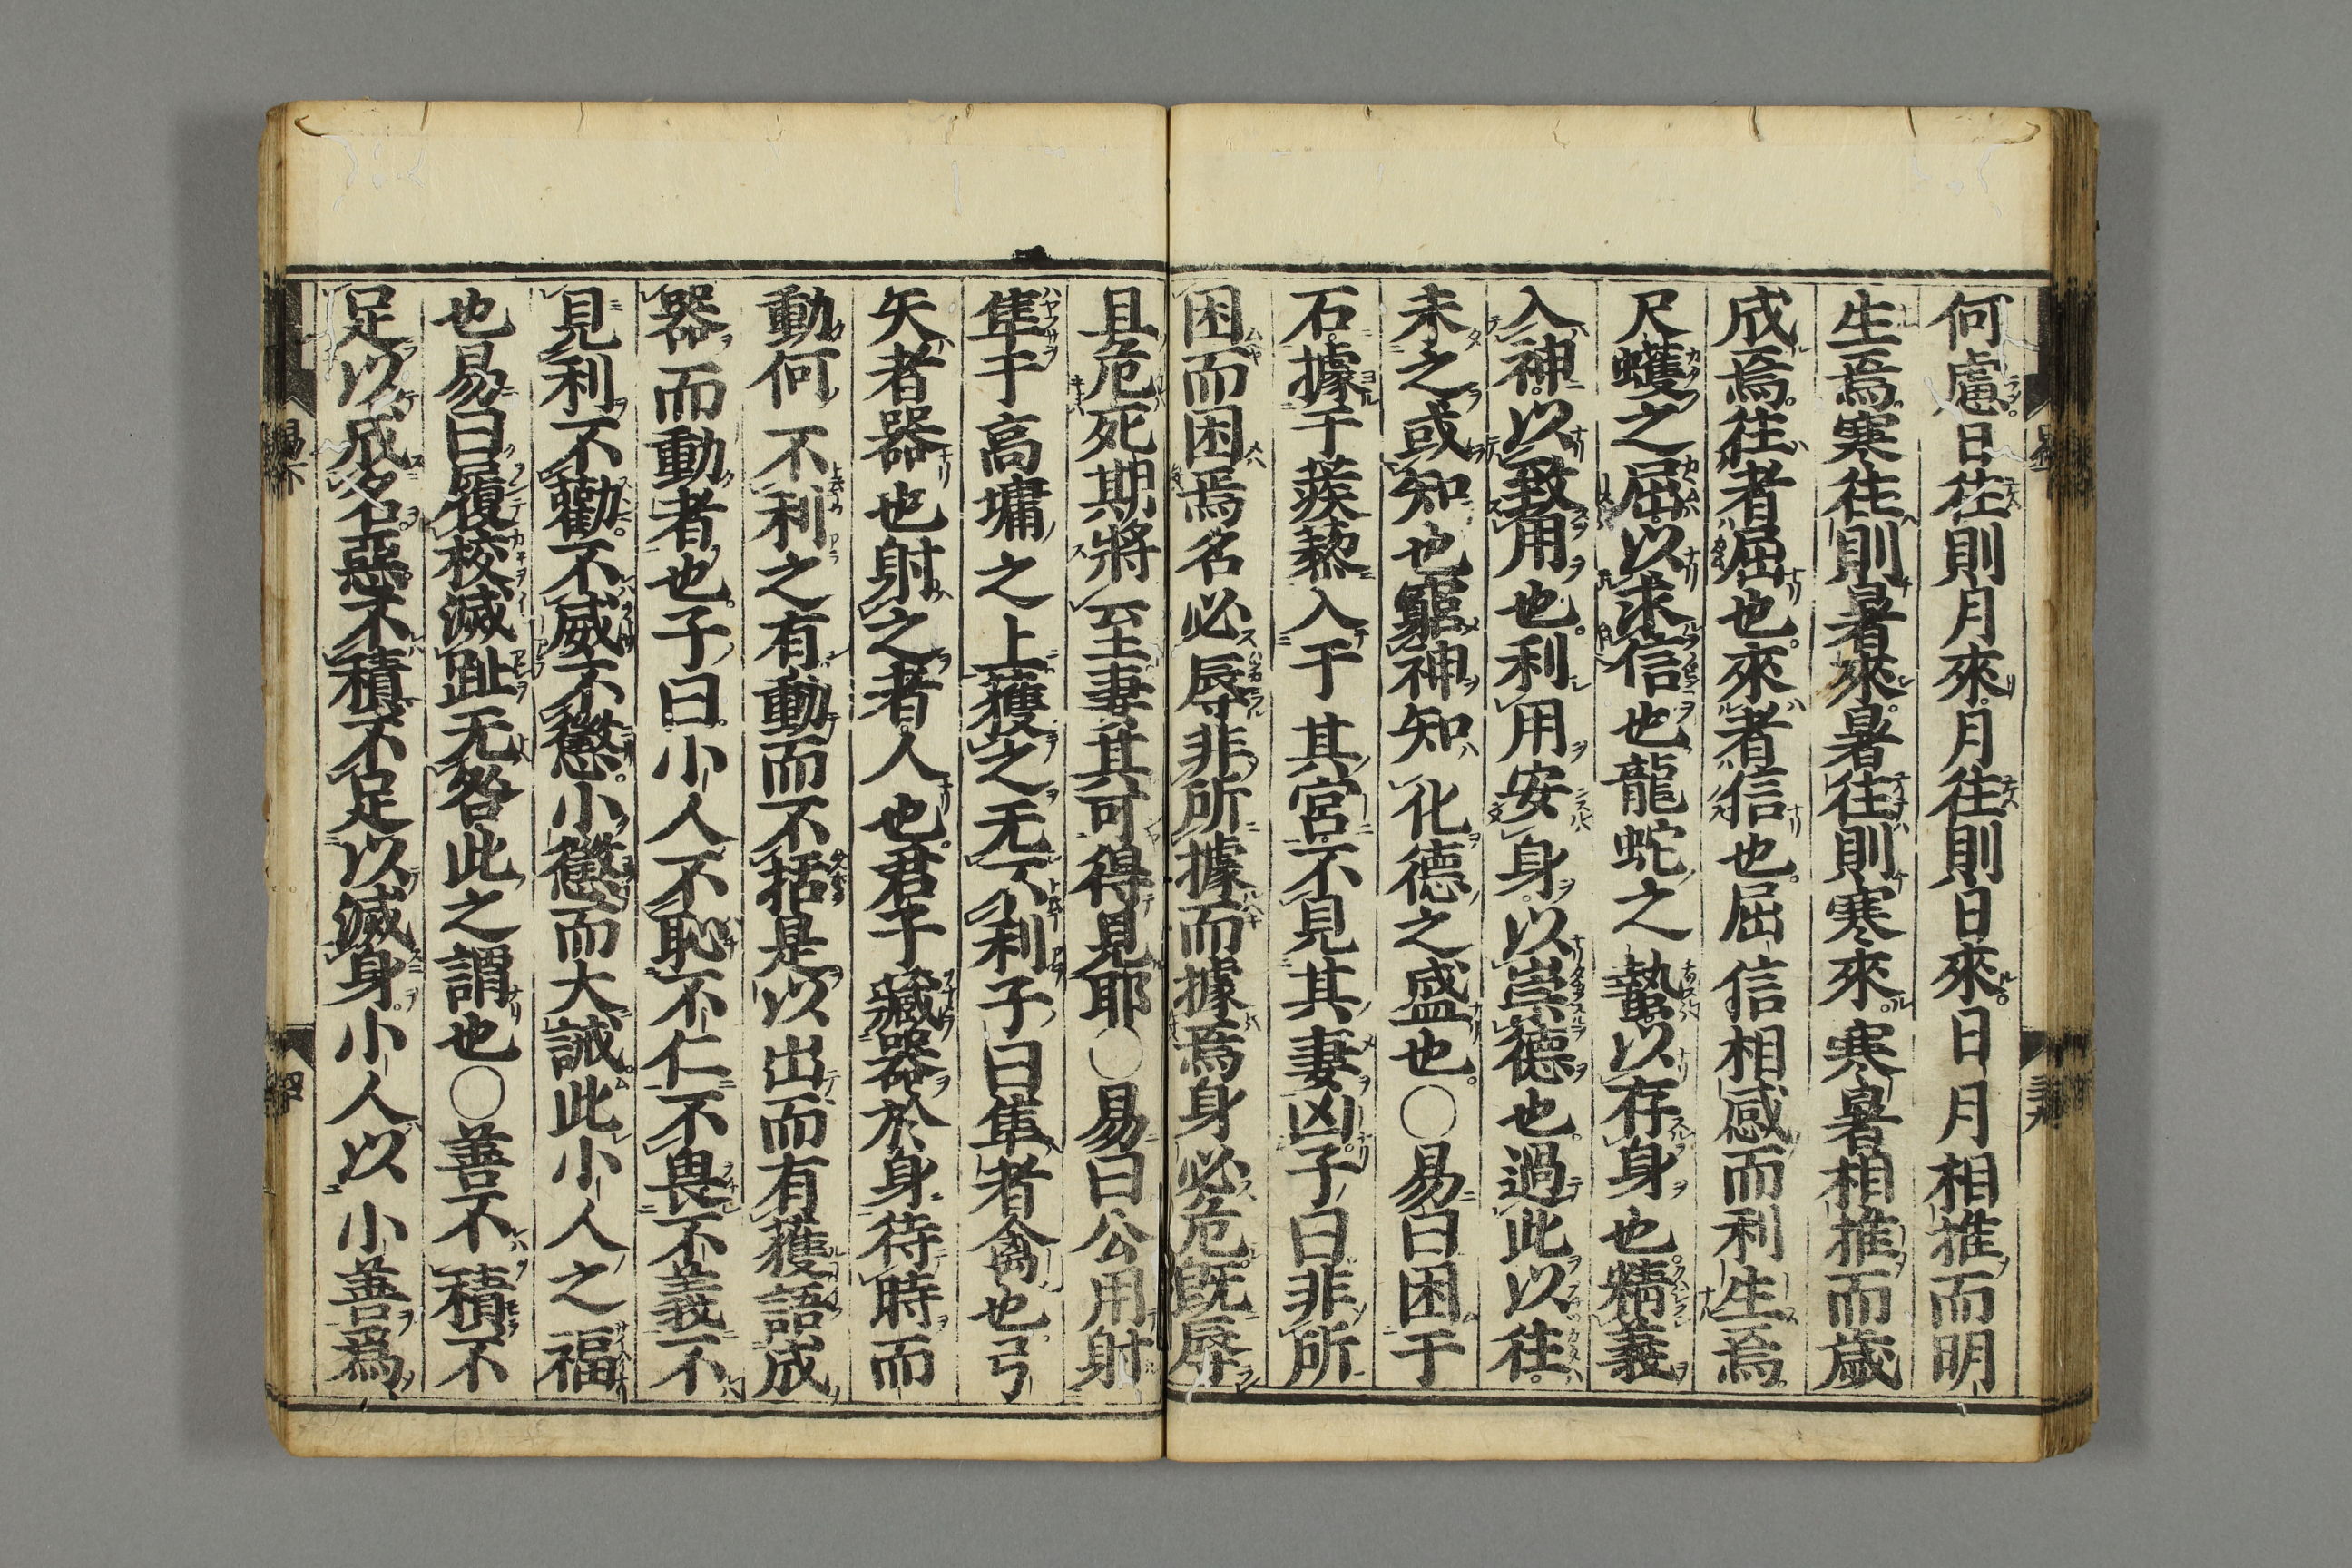 何慮日徃則月來月徃則日來日月相推而明
生焉寒徃則暑來暑徃則寒來寒暑相推而歲
成焉徃者屈也來者信也屈信相感而利生焉
尺蠖之屈以求信也龍蛇之蟄以存身也精義
入神以致用也利用安身以崇德也過此以徃
未之或知也窮神知化德之盛也○易曰困于
石據于蒺蔾入于其宮不見其妻凶子曰非所
困而困焉名必辱非所據而據焉身必危旣辱
且危死期將至妻其可得見耶○易曰公用射
隼于高墉之上獲之无不利子曰隼者禽也弓
矢者器也射之者人也君子藏器於身待時而
動何不利之有動而不括是以出而有獲語成
器而動者也子曰小人不恥不仁不畏不義不
見利不勸不威不懲小懲而大誡此小人之福
也易曰履校滅趾无咎此之謂也○善不積不
足以成名惡不積不足以滅身小人以小善爲